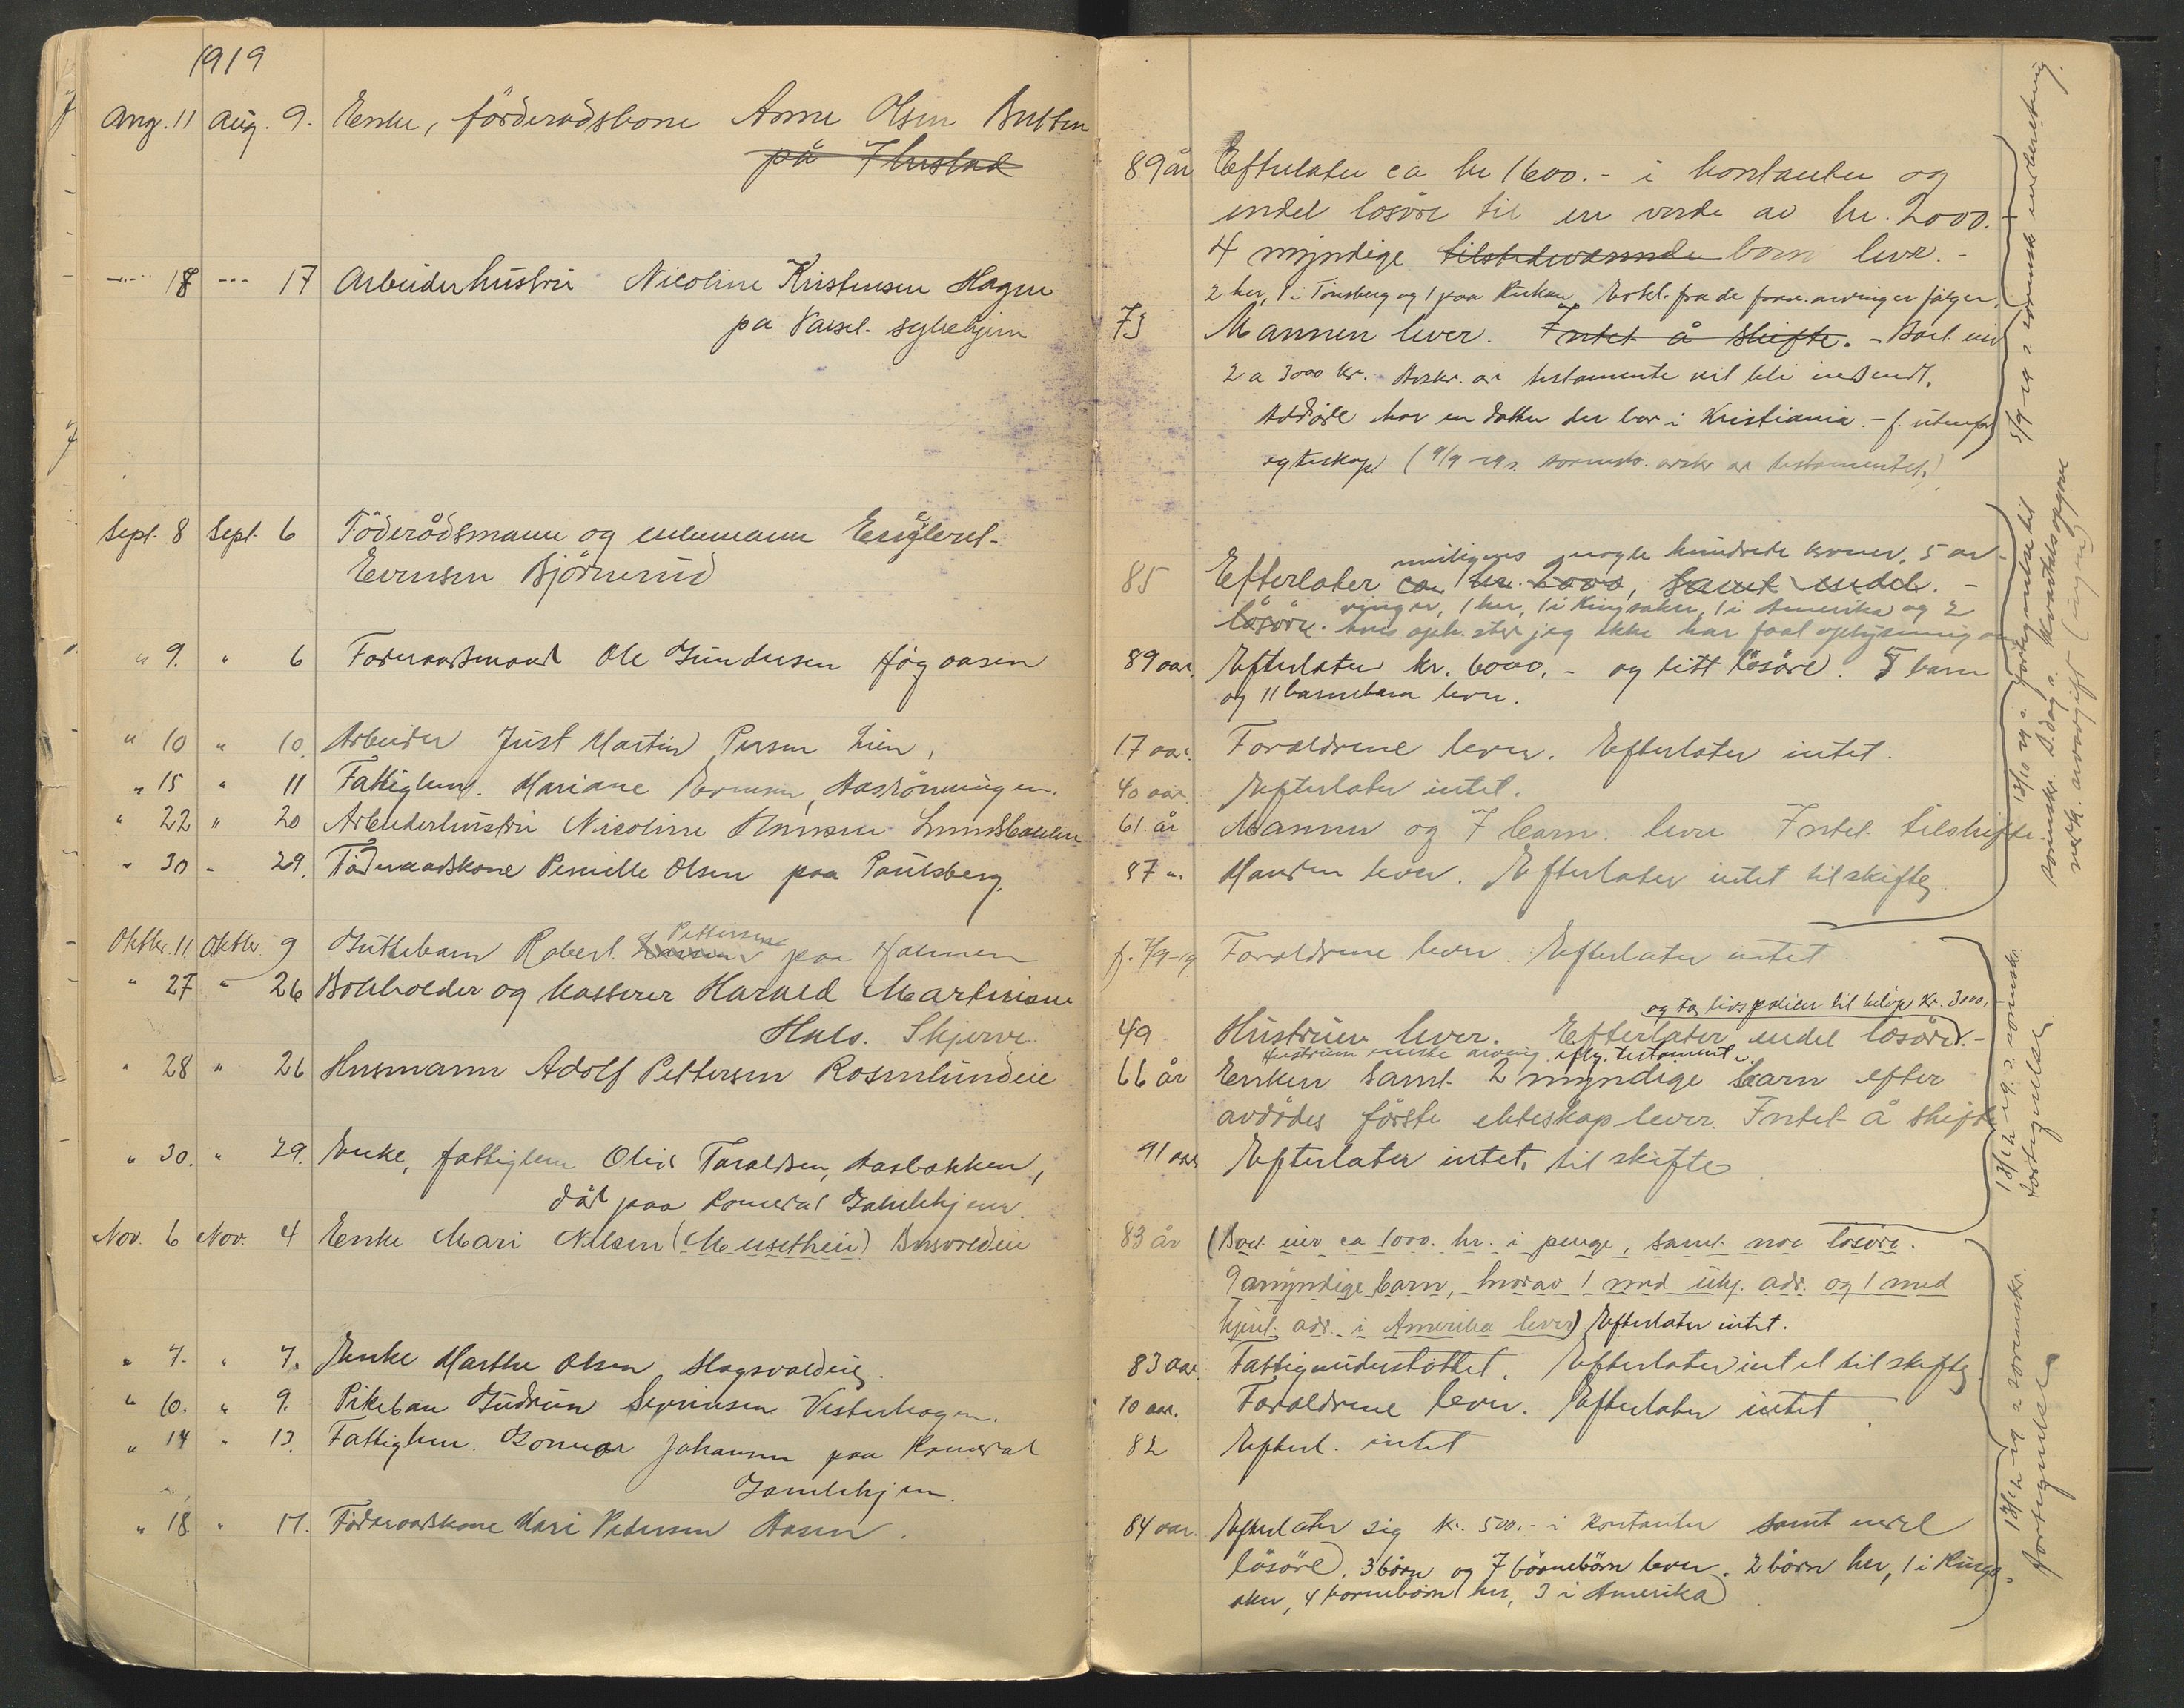 1919
Aug. 11 Aug. 9. Enke, föderådskone Anne Olsen
på
18 17 Arbeiderhustru Nicoline Kristensen Hagen
pa Valset. sykehjem
Sept. 8 Sept. 6 Föderådsmann og enkemann
Evensen Björnerud
" 9. " 6 Föderaadsmand Ole Gundersen Högaasen
" 10 " 10. Arbeider Just Martin Persen Lien,
" 15 " 11 Fattiglem. Mariane Evensen,
" 22 " 20 Arbeiderhustru Nicoline Hansen Lundsbakken
" 30 - 29. Föderaadskone Pernille Olsen paa Paulsberg.
Oktbr. 11 Oktbr. 9 Guttebarn Robert Pettersen paa Holmen
" 27 " 26 Bokholder og kasserer Harald Martinius
Skjerve.
" 28 " 26 Husmann Adolf Pettersen Rosenlundeie
" 30. " 29. Enke, fattiglem Olea Taraldsen, Aasbakken,
död paa Romedal Gamlehjem.
Nov. 6 Nov. 4 Enke Mari Nilsen (Musetheie)
" 7. " 7. Enke Marthe Olsen Hagsvoldeie.
" 10. " 9. Pikebarn Gudrun Syversen Vesterhagen.
" 14 " 13. Fattiglem. Gunnar Johansen paa Romedal
Gamlehjem.
" 18 " 17. Föderaadskone Kari Pedersen Aasen.
89 år Efterlater ca kr 1600.- i kontanter og
endel lösöre til en verde av kr. 2000.-
4 myndige tilstedeværende barn lever.-
2 her, 1 i Tönsberg og 1 paa Rjukan. Erkl. fra de arvinger følger.
73 Mannen lever. Intet å skifte. - Boet eier
2 a 3000 kr. Avskr. av testamente vil bli indsendt.
Avdöde har en datter der bor i Kristiania. - f. utenfor
egteskap (9/9-19 s. sorenskr. avskr av testamentet.)
muligens nogle hundrede kroner. 5 ar-
85 Efterlater ca kr. 2000, samt endel.-
lösöre. vinger, 1 her, 1 i Ringsaker, 1 i Amerika og 2
hvis opholdsted jeg ikke har faat oplysning om
89 aar. Efterlater kr. 6000.- og litt lösöre. 5 barn
og 11 barnebarn lever.
17 aar. Foreldrene lever. Efterlater intet.
40 aar. Efterlater intet.
61 år Mannen og 7 barn lever Intet til skifte.
87 " Manden lever. Efterlater intet til skifte
f. 7/9-19 Foreldrene lever. Efterlater intet
og to livspoliser til belöp kr. 3000.-
49 Hustruen lever. Efterlater endel lösöre.-
Hustruen eneste arving iflg. testament.
66 år Enken samt 2 myndige barn efter
avdödes förste ekteskap lever. Intet å skifte
91 aar Efterlater intet til skifte
83 år (Boet eier ca 1000. kr. i penge, samt noe lösöre.
9 myndige barn, hvorav 1 med ukj. adr. og 1 med
kjent adr. i Amerika lever) Efterlater intet.
83 aar. Fattigunderstöttet. Efterlater intet til skifte
10 aar. Foreldrene lever. Efterlater intet
82 Efterl. intet
84 aar. Efterlater sig kr. 500.- i kontanter samt endel
lösöre. 3 börn og 7 börnebörn lever. 2 börn her, 1 i Rings-
aker, 4 börnebörn her, 3 i Amerika
5/9-19 s. sorenskr innberetning.
18/10 19 s. fortegnelse til
sorenskr. S. dag s. kvartalsopgave
vedk. arveavgift (ingen)
18/12-19 s. sorenskr.
fortegnelse
18/12-19 s sorenskr.
fortegnelse